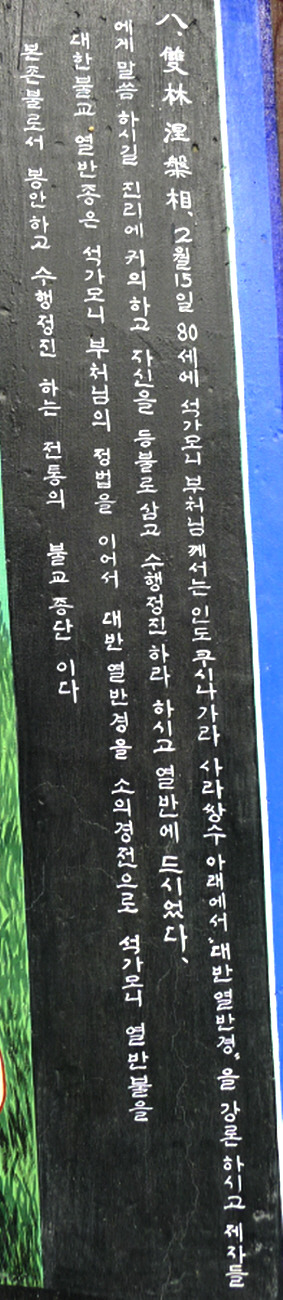 八、雙林 涅槃相、2월15일 80세에 석가모니 부처님께서는 인도 쿠시나가라 사라쌍수 아래에서 "대반열반경"을 강론하시고 제자들
에게 말씀 하시길 진리에 귀의하고 자신을 등불로 삼고 수행정진 하라 하시고 열반에 드시었다、
대한불교 열반종은 석가모니 부처님의 정법을 이어서 대반 열반경을 소의경전으로 석가모니 열반불을
본존불로서 봉안하고 수행정진 하는 전통의 불교 종단 이다